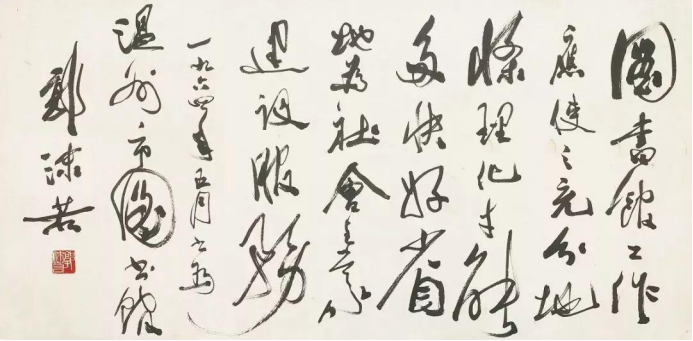 圖書館工作
應使之充分地
條理化才能
多快好省
地為社會主義
建设服務
一九六四年五月書為
温州市图书館
郭沫若